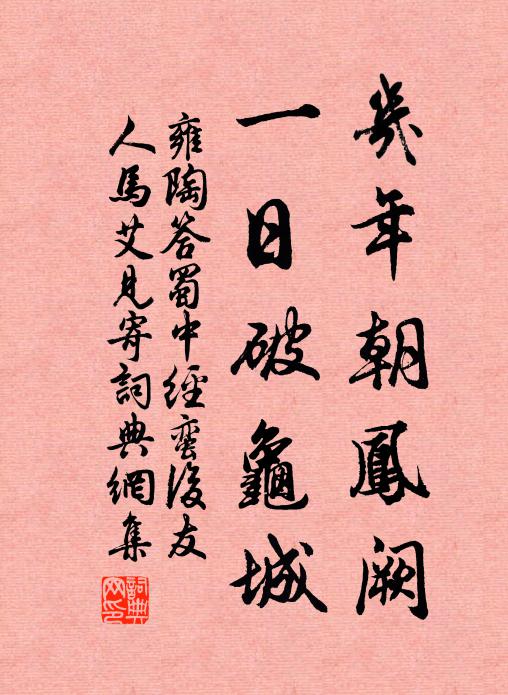 幾年朝鳳闕
一日破龜城
雍陶答蜀中經蠻後友
人馬艾見寄詞典網集
詞典网印